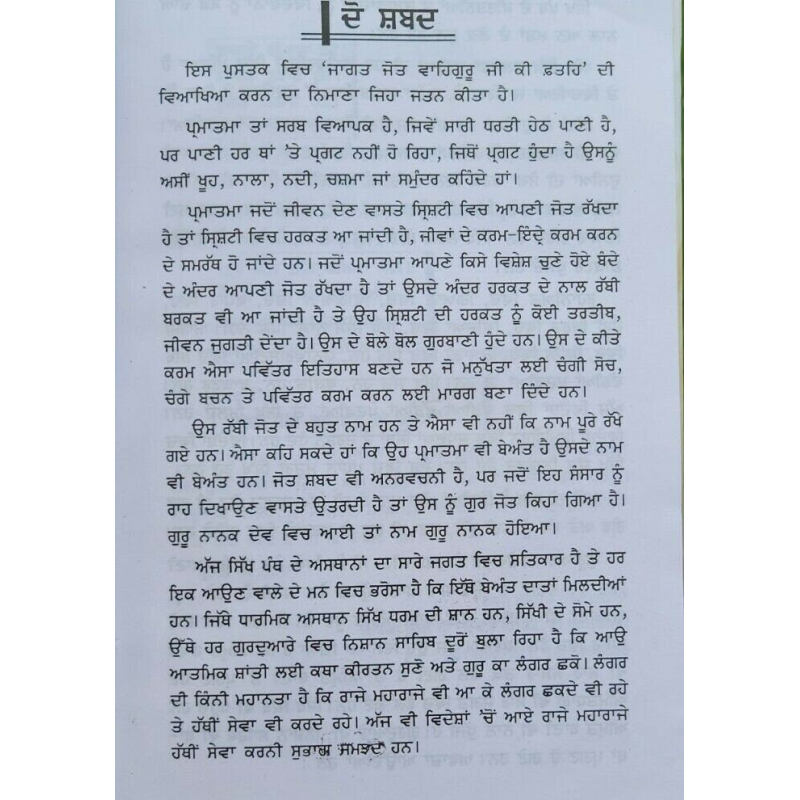 ਦੋ ਸ਼ਬਦ
ਇਸ ਪੁਸਤਕ ਵਿਚ 'ਜਾਗਤ ਜੋਤ ਵਾਹਿਗੁਰੂ ਜੀ ਕੀ ਫ਼ਤਹਿ' ਦੀ
ਵਿਆਖਿਆ ਕਰਨ ਦਾ ਨਿਮਾਣਾ ਜਿਹਾ ਜਤਨ ਕੀਤਾ ਹੈ।
ਪ੍ਰਮਾਤਮਾ ਤਾਂ ਸਰਬ ਵਿਆਪਕ ਹੈ, ਜਿਵੇਂ ਸਾਰੀ ਧਰਤੀ ਹੇਠ ਪਾਣੀ ਹੈ,
ਪਰ ਪਾਣੀ ਹਰ ਥਾਂ 'ਤੇ ਪ੍ਰਗਟ ਨਹੀਂ ਹੋ ਰਿਹਾ, ਜਿਥੋਂ ਪ੍ਰਗਟ ਹੁੰਦਾ ਹੈ ਉਸਨੂੰ
ਅਸੀਂ ਖੂਹ, ਨਾਲਾ, ਨਦੀ, ਚਸ਼ਮਾ ਜਾਂ ਸਮੁੰਦਰ ਕਹਿੰਦੇ ਹਾਂ।
ਪ੍ਰਮਾਤਮਾ ਜਦੋਂ ਜੀਵਨ ਦੇਣ ਵਾਸਤੇ ਸ੍ਰਿਸ਼ਟੀ ਵਿਚ ਆਪਣੀ ਜੋਤ ਰੱਖਦਾ
ਹੈ ਤਾਂ ਸ੍ਰਿਸ਼ਟੀ ਵਿਚ ਹਰਕਤ ਆ ਜਾਂਦੀ ਹੈ, ਜੀਵਾਂ ਦੇ ਕਰਮ-ਇੰਦ੍ਰੇ ਕਰਮ ਕਰਨ
ਦੇ ਸਮਰੱਥ ਹੋ ਜਾਂਦੇ ਹਨ। ਜਦੋਂ ਪ੍ਰਮਾਤਮਾ ਆਪਣੇ ਕਿਸੇ ਵਿਸ਼ੇਸ਼ ਚੁਣੇ ਹੋਏ ਬੰਦੇ
ਦੇ ਅੰਦਰ ਆਪਣੀ ਜੋਤ ਰੱਖਦਾ ਹੈ ਤਾਂ ਉਸਦੇ ਅੰਦਰ ਹਰਕਤ ਦੇ ਨਾਲ ਰੱਬੀ
ਬਰਕਤ ਵੀ ਆ ਜਾਂਦੀ ਹੈ ਤੇ ਉਹ ਸ੍ਰਿਸ਼ਟੀ ਦੀ ਹਰਕਤ ਨੂੰ ਕੋਈ ਤਰਤੀਬ,
ਜੀਵਨ ਜੁਗਤੀ ਦੇਂਦਾ ਹੈ। ਉਸ ਦੇ ਬੋਲੇ ਬੋਲ ਗੁਰਬਾਣੀ ਹੁੰਦੇ ਹਨ। ਉਸ ਦੇ ਕੀਤੇ
ਕਰਮ ਐਸਾ ਪਵਿੱਤਰ ਇਤਿਹਾਸ ਬਣਦੇ ਹਨ ਜੋ ਮਨੁੱਖਤਾ ਲਈ ਚੰਗੀ ਸੋਚ,
ਚੰਗੇ ਬਚਨ ਤੇ ਪਵਿੱਤਰ ਕਰਮ ਕਰਨ ਲਈ ਮਾਰਗ ਬਣਾ ਦਿੰਦੇ ਹਨ।
ਉਸ ਰੱਬੀ ਜੋਤ ਦੇ ਬਹੁਤ ਨਾਮ ਹਨ ਤੇ ਐਸਾ ਵੀ ਨਹੀਂ ਕਿ ਨਾਮ ਪੂਰੇ ਰੱਖੇ
ਗਏ ਹਨ। ਐਸਾ ਕਹਿ ਸਕਦੇ ਹਾਂ ਕਿ ਉਹ ਪ੍ਰਮਾਤਮਾ ਵੀ ਬੇਅੰਤ ਹੈ ਉਸਦੇ ਨਾਮ
ਵੀ ਬੇਅੰਤ ਹਨ। ਜੋਤ ਸ਼ਬਦ ਵੀ ਅਨਰਵਚਨੀ ਹੈ, ਪਰ ਜਦੋਂ ਇਹ ਸੰਸਾਰ ਨੂੰ
ਰਾਹ ਦਿਖਾਉਣ ਵਾਸਤੇ ਉਤਰਦੀ ਹੈ ਤਾਂ ਉਸ ਨੂੰ ਗੁਰ ਜੋਤ ਕਿਹਾ ਗਿਆ ਹੈ।
ਗੁਰੂ ਨਾਨਕ ਦੇਵ ਵਿਚ ਆਈ ਤਾਂ ਨਾਮ ਗੁਰੂ ਨਾਨਕ ਹੋਇਆ।
ਅੱਜ ਸਿੱਖ ਪੰਥ ਦੇ ਅਸਥਾਨਾਂ ਦਾ ਸਾਰੇ ਜਗਤ ਵਿਚ ਸਤਿਕਾਰ ਹੈ ਤੇ ਹਰ
ਇਕ ਆਉਣ ਵਾਲੇ ਦੇ ਮਨ ਵਿਚ ਭਰੋਸਾ ਹੈ ਕਿ ਇੱਥੋਂ ਬੇਅੰਤ ਦਾਤਾਂ ਮਿਲਦੀਆਂ
ਹਨ। ਜਿੱਥੇ ਧਾਰਮਿਕ ਅਸਥਾਨ ਸਿੱਖ ਧਰਮ ਦੀ ਸ਼ਾਨ ਹਨ, ਸਿੱਖੀ ਦੇ ਸੋਮੇ ਹਨ,
ਉੱਥੇ ਹਰ ਗੁਰਦੁਆਰੇ ਵਿਚ ਨਿਸ਼ਾਨ ਸਾਹਿਬ ਦੂਰੋਂ ਬੁਲਾ ਰਿਹਾ ਹੈ ਕਿ ਆਉ
ਆਤਮਿਕ ਸ਼ਾਂਤੀ ਲਈ ਕਥਾ ਕੀਰਤਨ ਸੁਣੋ ਅਤੇ ਗੁਰੂ ਕਾ ਲੰਗਰ ਛਕੋ। ਲੰਗਰ
ਦੀ ਕਿੰਨੀ ਮਹਾਨਤਾ ਹੈ ਕਿ ਰਾਜੇ ਮਹਾਰਾਜੇ ਵੀ ਆ ਕੇ ਲੰਗਰ ਛਕਦੇ ਵੀ ਰਹੇ
ਤੇ ਹੱਥੀਂ ਸੇਵਾ ਵੀ ਕਰਦੇ ਰਹੇ। ਅੱਜ ਵੀ ਵਿਦੇਸ਼ਾਂ 'ਚੋਂ ਆਏ ਰਾਜੇ ਮਹਾਰਾਜੇ
ਹੱਥੀਂ ਸੇਵਾ ਕਰਨੀ ਸੁਭਾਗ ਸਮਝਦੇ ਹਨ।